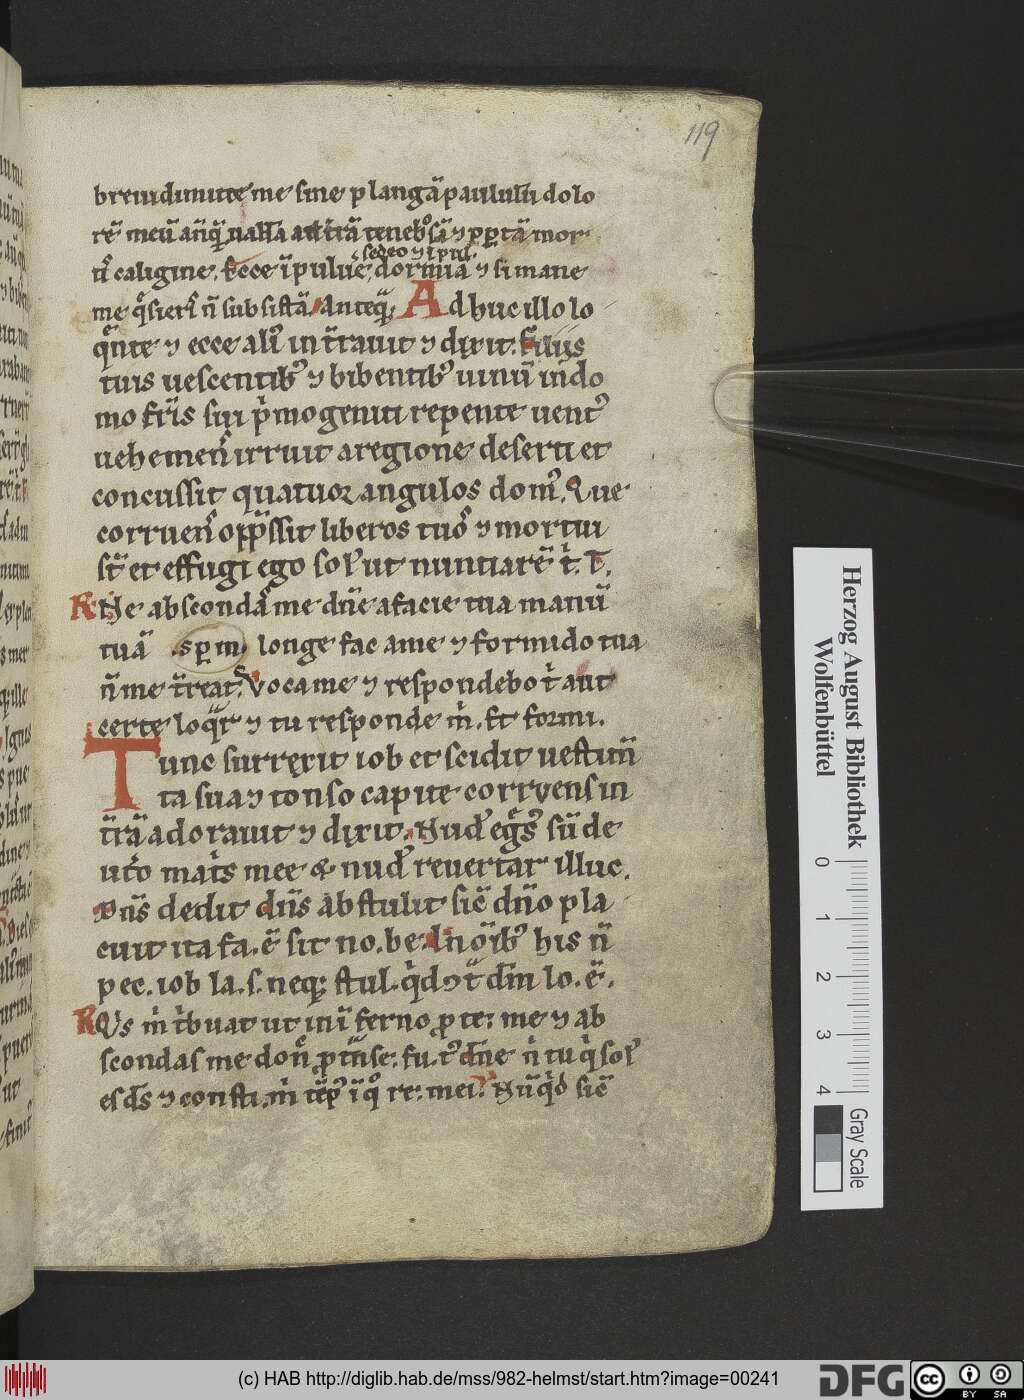 119
breui dimitte me sine plangā paululū dolo
rē meū an̄q̄ uadā ad t̄rā teneb°sā ⁊ opertā mor
tꝰ caligine. Ecce ī puluē
sedeo ⁊ ī pul.
dormiā ⁊ si mane
me q̄sierꝭ n̄ subsistā. Anteq̄. Adhuc illo lo
q̄nte ⁊ ecce aliꝰ intrauit ⁊ dixit. filiis
tuis uescentibꝰ ⁊ bibentibꝰ uinū in do
mo fr̄is sui p̄mogeniti repente uentꝰ
uehemenˢ irruit a regione deserti et
concussit quatuor angulos domꝰ. Que
corruenˢ opp̄ssit liberos tuoˢ ⁊ mortui
st̄ et effugi ego solꝰ ut nuntiarē t̄. T.
R Ne abscondaˢ me dn̄e a facie tua manū
tuā longe fac a me ⁊ formido tua
n̄ me t̄reat. Voca me ⁊ respondebo t̄ aut
certe loq̄r ⁊ tu responde m̄. Et formi.
Tunc surrexit iob et scidit uestim̄
ta sua ⁊ tonso capite corruens in
t̄rā adorauit ⁊ dixit. Nudꝰ eḡssꝰ sū de
ut̄o mat̄s mee & nudꝰ reuertar illuc.
Dn̄s dedit dn̄s abstulit sic̄ dn̄o pla
cuit ita fa. ē sit no. be. In oīibꝰ his n̄
pec. iob la. s. neq; stul. q̄d ⁊t̄ dm̄ lo. ē.
R Qis m̄ t̄buat ut in īferno p̄te: me ⁊ ab
scondas me donˢ p̄tn̄se. fu. tꝰ dn̄e n̄ tu q̄ solꝰ
es ds̄ ⁊ consti. m̄ tēpꝰ ī q° re: mei. V Nūq̄d sic̄
Herzog August Bibliothek
Wolfenbüttel
0 1 2 3 4
Gray Scale
(c) HAB http://diglib.hab.de/mss/982-helmst/start.htm?image=00241
DFG
cc
BY SA